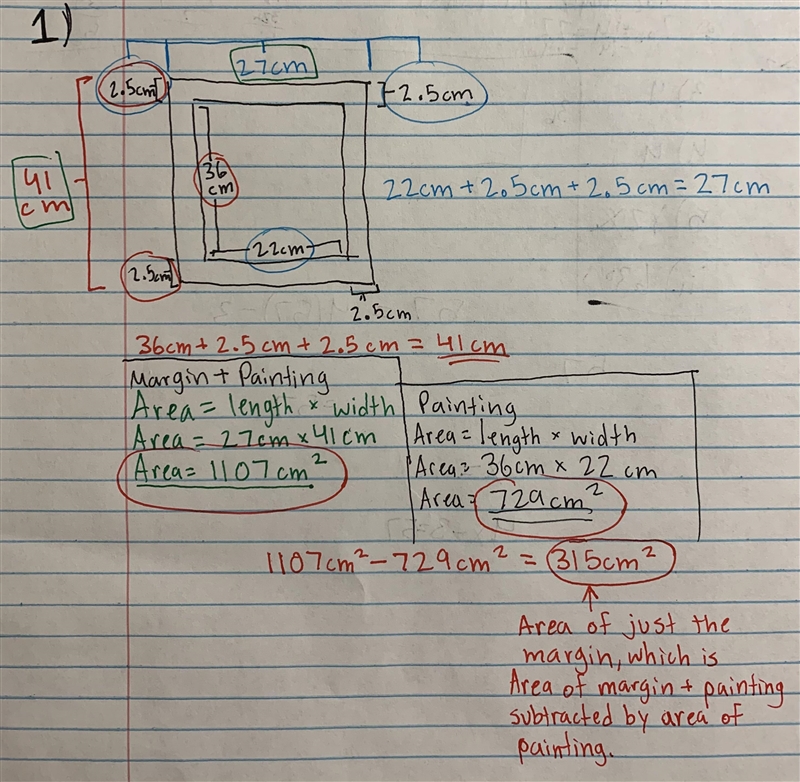 1)
27cm
2.5cm
2.5cm
36
cm
41
cm
22cm + 2.5cm + 2.5cm = 27cm
22cm
2.5cm
2.5cm
36cm + 2.5cm + 2.5cm = 41cm
Margin + Painting
Area = length × width
Area = 27cm × 41cm
Area = 1107cm²
Painting
Area = length × width
Area = 36cm × 22 cm
Area = 729cm²
1107cm² - 729cm² = 315cm²
Area of just the
margin, which is
Area of margin + painting
subtracted by area of
painting.